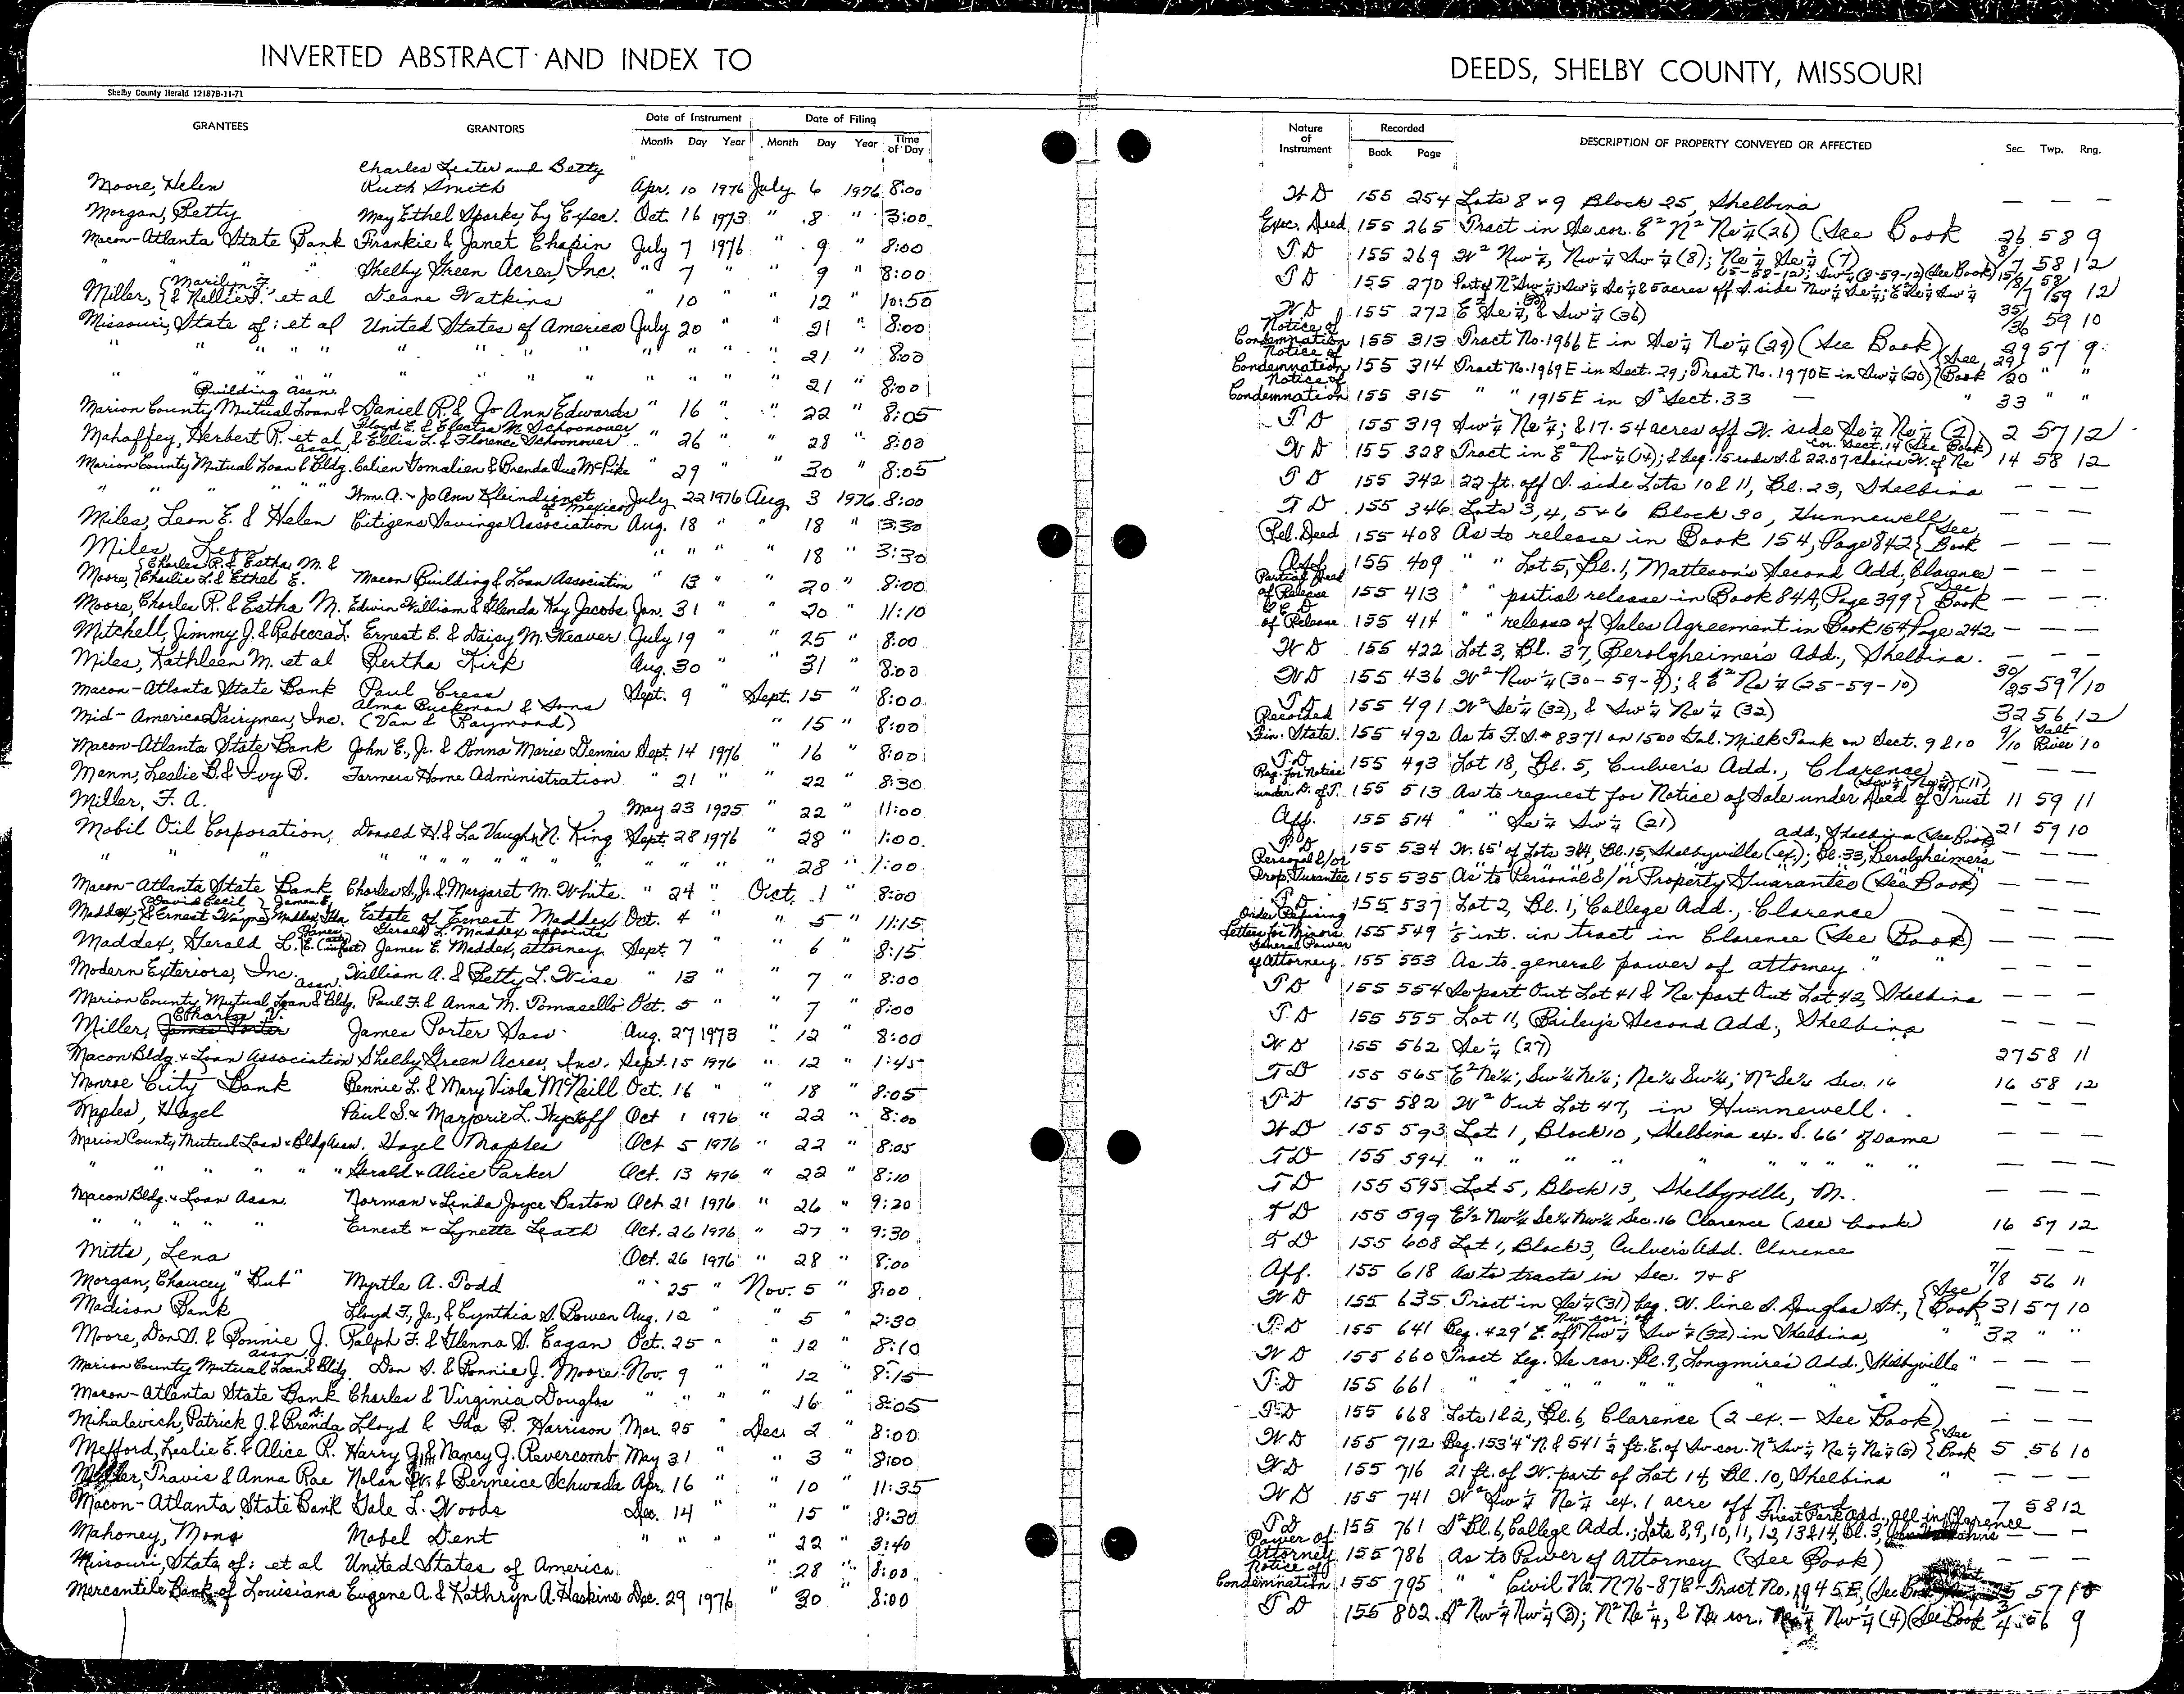 INVERTED ABSTRACT AND INDEX TO
Shelby County Herald 121878-11-71
GRANTEES GRANTORS Date of Instrument Date of Filing
Month Day Year Month Day Year Time of Day
Charles Lester and Betty
Moore, Helen Ruth Smith Apr. 10 1976 July 6 1976 8:00
Morgan, Betty May Ethel Sparks, by Exec. Oct. 16 1973 " 8 " 3:00
Macon-Atlanta State Bank Frankie & Janet Chapin July 7 1976 " 9 " 8:00
" " " Shelby Green Acres, Inc. " 7 " " 9 " 8:00
Miller, {Marilyn F. & Nellie F. et al Deane Watkins " 10 " " 12 " 10:50
Missouri, State of: et al United States of America July 20 " " 21 " 8:00
" " " " " " " " " " " " " 21 " 8:00
" " " " " " " " " " " " " 21 " 8:00
Building Assn.
Marion County Mutual Loan & Daniel R. & Jo Ann Edwards " 16 " " 22 " 8:05
Floyd E. & Electra M. Schoonover
Mahaffey, Herbert R. et al & Ellis L. & Florence Schoonover " 26 " " 28 " 8:00
Assn.
Marion County Mutual Loan & Bldg. Calien Tomalien & Brenda Sue McPike " 29 " " 30 " 8:05
" " " " " Wm. A. & Jo Ann Kleindienst July 22 1976 Aug. 3 1976 8:00
of Mexico
Miles, Leon E. & Helen Citizens Savings Association Aug. 18 " " 18 " 3:30
Miles, Leon " " " " 18 " 3:30
Moore, {Charles R. & Estha M. & Charlie L. & Ethel E. Macon Building & Loan Association " 13 " " 20 " 8:00
Moore, Charles R. & Estha M. Edwin William & Glenda Kay Jacobs Jan. 31 " " 20 " 11:10
Mitchell, Jimmy J. & Rebecca L. Ernest C. & Daisy M. Weaver July 19 " " 25 " 8:00
Miles, Kathleen M. et al Bertha Kirk Aug. 30 " " 31 " 8:00
Macon-Atlanta State Bank Paul Cress Sept. 9 " Sept. 15 " 8:00
Alma Buckman & Sons
Mid-America Dairymen, Inc. (Van & Raymond) " 15 " 8:00
Macon-Atlanta State Bank John E., Jr. & Donna Marie Dennis Sept. 14 1976 " 16 " 8:00
Mann, Leslie B. & Ivy B. Farmers Home Administration " 21 " " 22 " 8:30
Miller, F. A. May 23 1925 " 22 " 11:00
Mobil Oil Corporation, Donald H. & La Vaughn N. King Sept. 28 1976 " 28 " 1:00
" " " " " " " " " " " " " 28 " 1:00
Macon-Atlanta State Bank Charles S., Jr. & Margaret M. White " 24 " Oct. 1 " 8:00
Maddex, {David Cecil & Ernest Wayne} James E. Maddex, Estate of Ernest Maddex Oct. 4 " " 5 " 11:15
Gerald L. Maddex appoints
Maddex, Gerald L. James E. James E. Maddex, attorney Sept. 7 " " 6 " 8:15
Modern Exteriors, Inc. William A. & Betty L. Wise " 13 " " 7 " 8:00
Assn.
Marion County Mutual Loan & Bldg. Paul F. & Anna M. Tomasello Oct. 5 " " 7 " 8:00
Miller, James Porter James Porter Sass Aug. 27 1973 " 12 " 8:00
Macon Bldg. & Loan Association Shelby Green Acres, Inc. Sept. 15 1976 " 12 " 1:45
Monroe City Bank Bennie L. & Mary Viola McNeill Oct. 16 " " 18 " 8:05
Maples, Hazel Paul S. & Marjorie L. Wyckoff Oct 1 1976 " 22 " 8:00
Marion County Mutual Loan & Bldg Assn. Hazel Maples Oct 5 1976 " 22 " 8:05
" " " " " " Gerald & Alice Parker Oct. 13 1976 " 22 " 8:10
Macon Bldg. & Loan Assn. Norman & Linda Joyce Barton Oct 21 1976 " 26 " 9:20
" " " " " Ernest & Lynette Leath Oct. 26 1976 " 27 " 9:30
Mitts, Lena Oct. 26 1976 " 28 " 8:00
Morgan, Chaucey "But" Myrtle A. Todd " 25 " Nov. 5 " 8:00
Madison Bank Lloyd F., Jr., & Cynthia S. Bowen Aug. 12 " " 5 " 2:30
Moore, Don S. & Bonnie J. Ralph F. & Glenna S. Eagan Oct. 25 " " 12 8:10
Assn.
Marion County Mutual Loan & Bldg. Don S. & Bonnie J. Moore Nov. 9 " " 12 " 8:15
Macon-Atlanta State Bank Charles & Virginia Douglas " " " " 16 " 8:05
Mihalevich, Patrick J. & Brenda D. Lloyd & Ida B. Harrison Mar. 25 " Dec. 2 " 8:00
Mefford, Leslie E. & Alice R. Harry J. & Nancy J. Revercomb May 31 " " 3 " 8:00
Miller, Travis & Anna Rae Nolan W. & Berneice Schwada Apr. 16 " " 10 " 11:35
Macon-Atlanta State Bank Gale L. Woods Dec. 14 " 15 " 8:30
Mahoney, Mona Mabel Dent " " " " 22 " 3:40
Missouri, State of: et al United States of America " 28 " 8:00
Mercantile Bank of Louisiana Eugene A. & Kathryn A. Haskins Dec. 29 1976 " 30 " 8:00
DEEDS, SHELBY COUNTY, MISSOURI
Nature of Instrument Recorded DESCRIPTION OF PROPERTY CONVEYED OR AFFECTED Sec. Twp. Rng.
Book Page
W D 155 254 Lots 8 & 9 Block 25, Shelbina — — —
Exec. Deed 155 265 Tract in Se cor. E² N² Ne¼ (26) (See Book 26 58 9
T D 155 269 W² Nw¼, Nw¼ Sw¼ (8); Ne¼ Se¼ (7) 8/7 58 12
(15-58-12); Sw¼ (8-59-12) (See Book)
T D 155 270 Part of N² Sw¼; Sw¼ Se¼ & 5 acres off S. side Nw¼ Se¼; E² Se¼ Sw¼ 12
W D 155 272 E² Se¼, & Sw¼ (36) 35/36 59 10
Notice of Condemnation 155 313 Tract No. 1966E in Se¼ Ne¼ (29) (See Book) 29 57 9
Notice of Condemnation 155 314 Tract No. 1969E in Sect. 29; Tract No. 1970E in Sw¼ (20) {See Book 29/20 " "
Notice of Condemnation 155 315 " " 1915E in S² Sect. 33 — " 33 " "
T D 155 319 Sw¼ Ne¼; & 17.54 acres off W. side Se¼ Ne¼ (2) 2 57 12
cor. Sect. 14 (See Book)
W D 155 328 Tract in E² Nw¼ (14); & beg. 15 rods S. & 22.07 chains W. of Ne 14 58 12
T D 155 342 22 ft. off S. side Lots 10 & 11, Bl. 23, Shelbina — — —
T D 155 346 Lots 3, 4, 5 & 6 Block 30, Hunnewell — — —
Rel. Deed 155 408 As to release in Book 154, Page 842 {See Book — — —
Aff. 155 409 " " Lot 5, Bl. 1, Matteson's Second Add., Clarence — — —
Partial Deed of Release 155 413 " " partial release in Book 84A, Page 399 {See Book — — —
of Release 155 414 " " release of Sales Agreement in Book 154, Page 242 — — —
W D 155 422 Lot 3, Bl. 37, Berolzheimer's Add., Shelbina. — — —
W D 155 436 W² Nw¼ (30-59-9); & E² Ne¼ (25-59-10) 30/25 59 9/10
T D 155 491 W² Se¼ (32), & Sw¼ Ne¼ (32) 32 56 12
Recorded Fin. State. 155 492 As to F.S. # 8371 on 1500 Gal. Milk Tank on Sect. 9 & 10 9/10 Salt River 10
T D 155 493 Lot 18, Bl. 5, Culver's Add., Clarence — — —
(Sw¼ Nw¼) (11)
Req. for Notice under D. of T. 155 513 As to request for Notice of Sale under Deed of Trust 11 59 11
Aff. 155 514 " " Se¼ Sw¼ (21) 21 59 10
Add., Shelbina (See Book)
T D 155 534 W. 65' of Lots 3 & 4, Bl. 15, Shelbyville (ex.); Bl. 33, Berolzheimer's — — —
Personal &/or Prop. Guarantee 155 535 As to Personal &/or Property Guarantee (See Book) — — —
T D 155 537 Lot 2, Bl. 1, College Add., Clarence — — —
Order Refusing Letters for Minors 155 549 ⅕ int. in tract in Clarence (See Book) — — —
General Power of Attorney 155 553 As to general power of attorney " " — — —
T D 155 554 Se part Out Lot 41 & Ne part Out Lot 42, Shelbina — — —
T D 155 555 Lot 11, Bailey's Second Add., Shelbina — — —
W D 155 562 Se¼ (27) 27 58 11
T D 155 565 E² Ne¼; Sw¼ Ne¼; Ne¼ Sw¼; N² Se¼ Sec. 16 16 58 12
T D 155 582 W² Out Lot 47, in Hunnewell. — — —
W D 155 593 Lot 1, Block 10, Shelbina ex. S. 66' of same — — —
T D 155 594 " " " " " " " " — — —
T D 155 595 Lot 5, Block 13, Shelbyville, M. — — —
T D 155 599 E½ Nw¼ Se¼ Nw¼ Sec. 16 Clarence (see book) 16 57 12
T D 155 608 Lot 1, Block 3, Culver's Add. Clarence — — —
Aff. 155 618 As to tracts in Sec. 7 & 8 7/8 56 11
W D 155 635 Tract in Se¼ (31) beg. W. line S. Douglas St., {See Book 31 57 10
Nw cor. of
T D 155 641 Beg. 429' E. of Nw¼ Sw¼ (32) in Shelbina, " 32 " "
W D 155 660 Tract beg. Se cor. Bl. 9, Longmire's Add., Shelbyville " — — —
T D 155 661 " " " " " " " " — — —
T D 155 668 Lots 1 & 2, Bl. 6, Clarence (2 ex. — See Book) — — —
W D 155 712 Beg. 153'4" N. & 541½ ft. E. of Sw cor. N² Sw¼ Ne¼ Ne¼ (5) {See Book 5 56 10
W D 155 716 21 ft. of W. part of Lot 14, Bl. 10, Shelbina " — — —
W D 155 741 W² Sw¼ Ne¼ ex. 1 acre off N. end 7 58 12
Forest Park Add., all in Clarence
T D 155 761 S² Bl. 6, College Add.; Lots 8, 9, 10, 11, 12, 13 & 14, Bl. 3, — —
Power of Attorney 155 786 As to Power of Attorney (See Book) — — —
Notice of Condemnation 155 795 " " Civil No. N76-87C-Tract No. 1945E, (See Book 57 10
T D 155 802 S² Nw¼ Nw¼ (3); N² Ne¼, & Ne cor. Nw¼ (4) (See Book 3/4 56 9